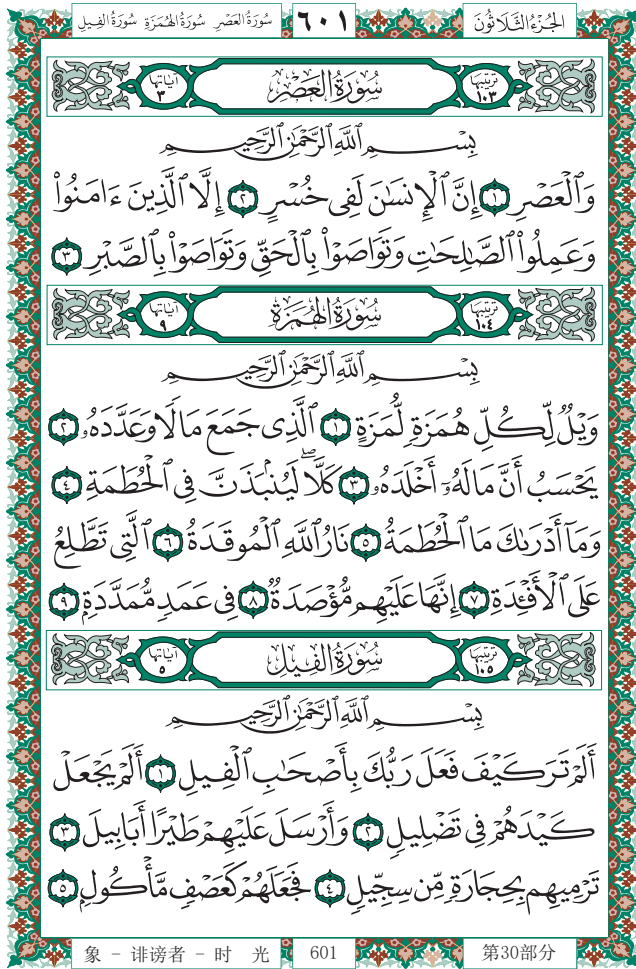 الجُزْءُ الثَّلَاثُونَ
٦٠١
سُورَةُ العَصْرِ سُورَةُ الهُمَزَةِ سُورَةُ الفِيلِ
تَرْتِيبُهَا ١٠٣ سُورَةُ العَصْرِ آيَاتُهَا ٣
بِسْمِ ٱللَّهِ ٱلرَّحْمَٰنِ ٱلرَّحِيمِ
وَٱلْعَصْرِ ١ إِنَّ ٱلْإِنسَٰنَ لَفِى خُسْرٍ ٢ إِلَّا ٱلَّذِينَ ءَامَنُوا۟
وَعَمِلُوا۟ ٱلصَّٰلِحَٰتِ وَتَوَاصَوْا۟ بِٱلْحَقِّ وَتَوَاصَوْا۟ بِٱلصَّبْرِ ٣
تَرْتِيبُهَا ١٠٤ سُورَةُ الهُمَزَةِ آيَاتُهَا ٩
بِسْمِ ٱللَّهِ ٱلرَّحْمَٰنِ ٱلرَّحِيمِ
وَيْلٌ لِّكُلِّ هُمَزَةٍ لُّمَزَةٍ ١ ٱلَّذِى جَمَعَ مَالًا وَعَدَّدَهُۥ ٢
يَحْسَبُ أَنَّ مَالَهُۥٓ أَخْلَدَهُۥ ٣ كَلَّا ۖ لَيُنۢبَذَنَّ فِى ٱلْحُطَمَةِ ٤
وَمَآ أَدْرَىٰكَ مَا ٱلْحُطَمَةُ ٥ نَارُ ٱللَّهِ ٱلْمُوقَدَةُ ٦ ٱلَّتِى تَطَّلِعُ
عَلَى ٱلْأَفْـِٔدَةِ ٧ إِنَّهَا عَلَيْهِم مُّؤْصَدَةٌ ٨ فِى عَمَدٍ مُّمَدَّدَةٍۭ ٩
تَرْتِيبُهَا ١٠٥ سُورَةُ الفِيلِ آيَاتُهَا ٥
بِسْمِ ٱللَّهِ ٱلرَّحْمَٰنِ ٱلرَّحِيمِ
أَلَمْ تَرَ كَيْفَ فَعَلَ رَبُّكَ بِأَصْحَٰبِ ٱلْفِيلِ ١ أَلَمْ يَجْعَلْ
كَيْدَهُمْ فِى تَضْلِيلٍ ٢ وَأَرْسَلَ عَلَيْهِمْ طَيْرًا أَبَابِيلَ ٣
تَرْمِيهِم بِحِجَارَةٍ مِّن سِجِّيلٍ ٤ فَجَعَلَهُمْ كَعَصْفٍ مَّأْكُولٍۭ ٥
象 - 诽谤者 - 时 光
601
第30部分